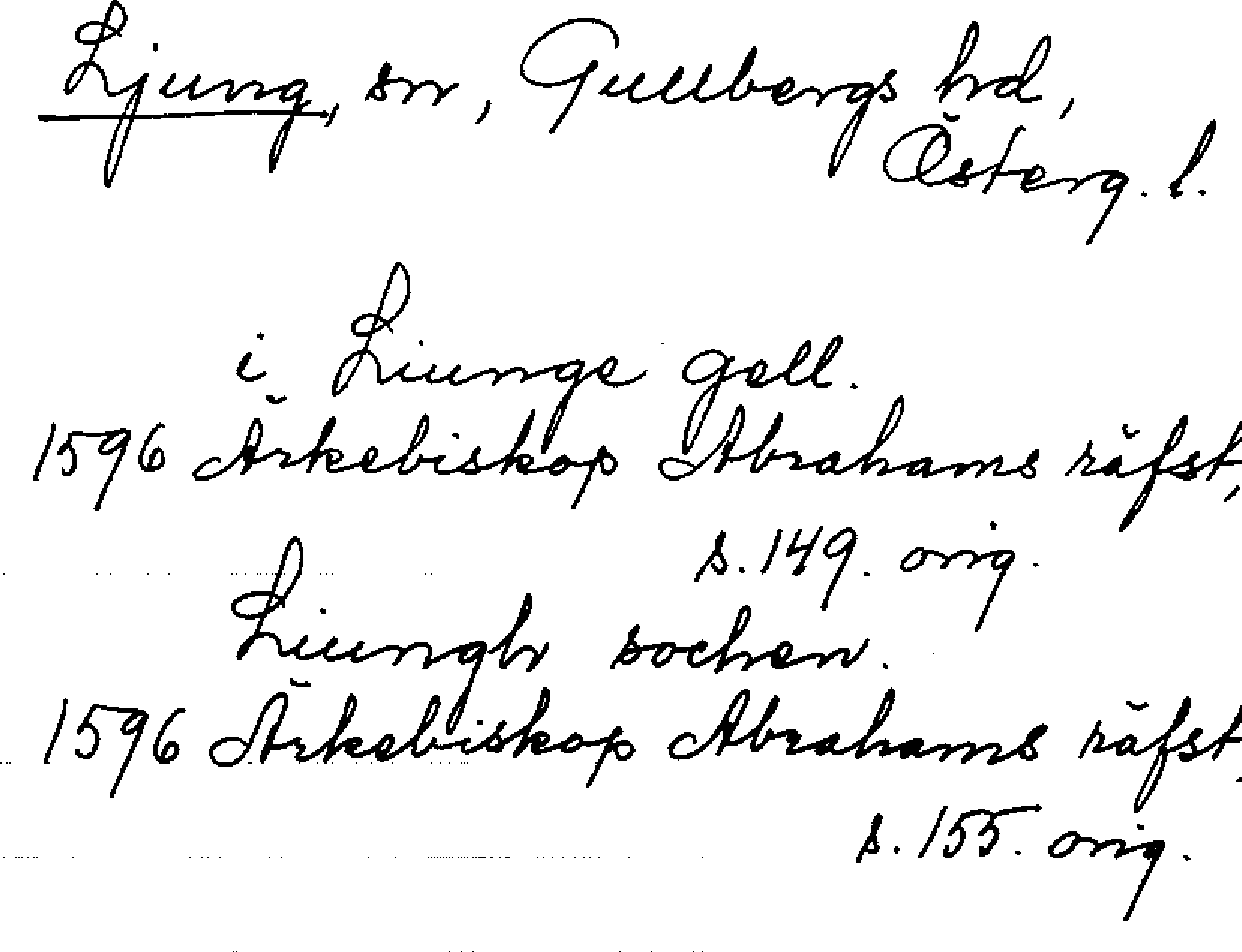 Ljung, sn, Gullbergs hd,
Österg. l.
i Liunge gell.
1596 Ärkebiskop Abrahams räfst,
s. 149. orig.
Liungh sochen.
1596 Ärkebiskop Abrahams räfst,
s. 155. orig.